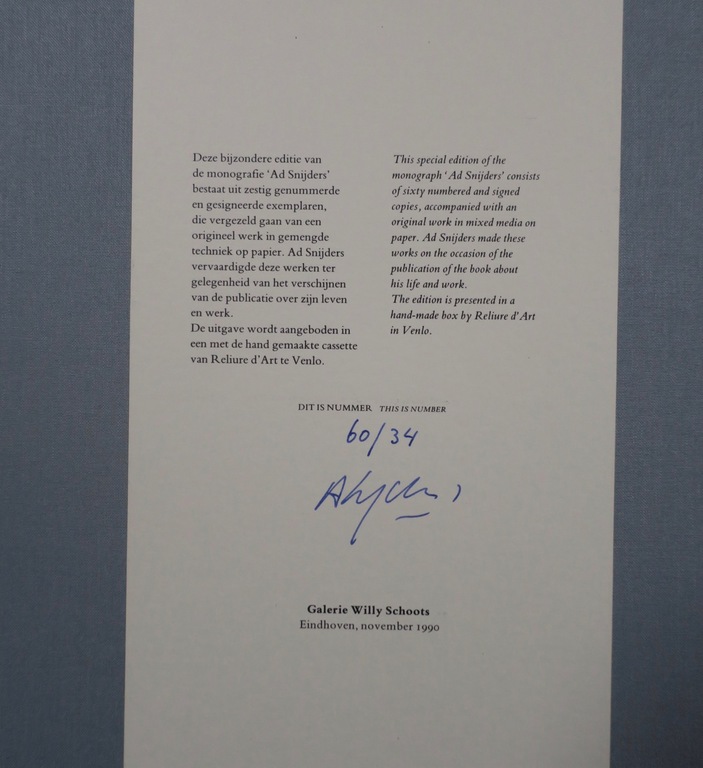 Deze bijzondere editie van
de monografie ‘Ad Snijders’
bestaat uit zestig genummerde
en gesigneerde exemplaren,
die vergezeld gaan van een
origineel werk in gemengde
techniek op papier. Ad Snijders
vervaardigde deze werken ter
gelegenheid van het verschijnen
van de publicatie over zijn leven
en werk.
De uitgave wordt aangeboden in
een met de hand gemaakte cassette
van Reliure d’Art te Venlo.
This special edition of the
monograph ‘Ad Snijders’ consists
of sixty numbered and signed
copies, accompanied with an
original work in mixed media on
paper. Ad Snijders made these
works on the occasion of the
publication of the book about
his life and work.
The edition is presented in a
hand-made box by Reliure d’Art
in Venlo.
DIT IS NUMMER THIS IS NUMBER
60/34
Galerie Willy Schoots
Eindhoven, november 1990